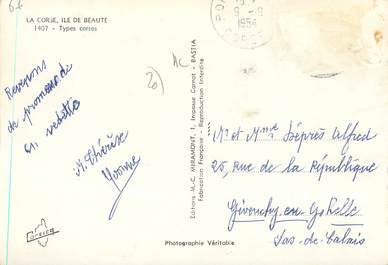 LA CORSE, ILE DE BEAUTÉ
1407 - Types corses
Revenons
de promenade
en vedette
M. Thérèse
Yvonne
Corsica
Editions M.-C. MERAMONT, 1, Impasse Carnot - BASTIA
Fabrication Française - Reproduction Interdite
1956
Mr et Mme Alfred
25, Rue de la République
Givenchy en Gohelle
Pas-de-Calais
Photographie Véritable